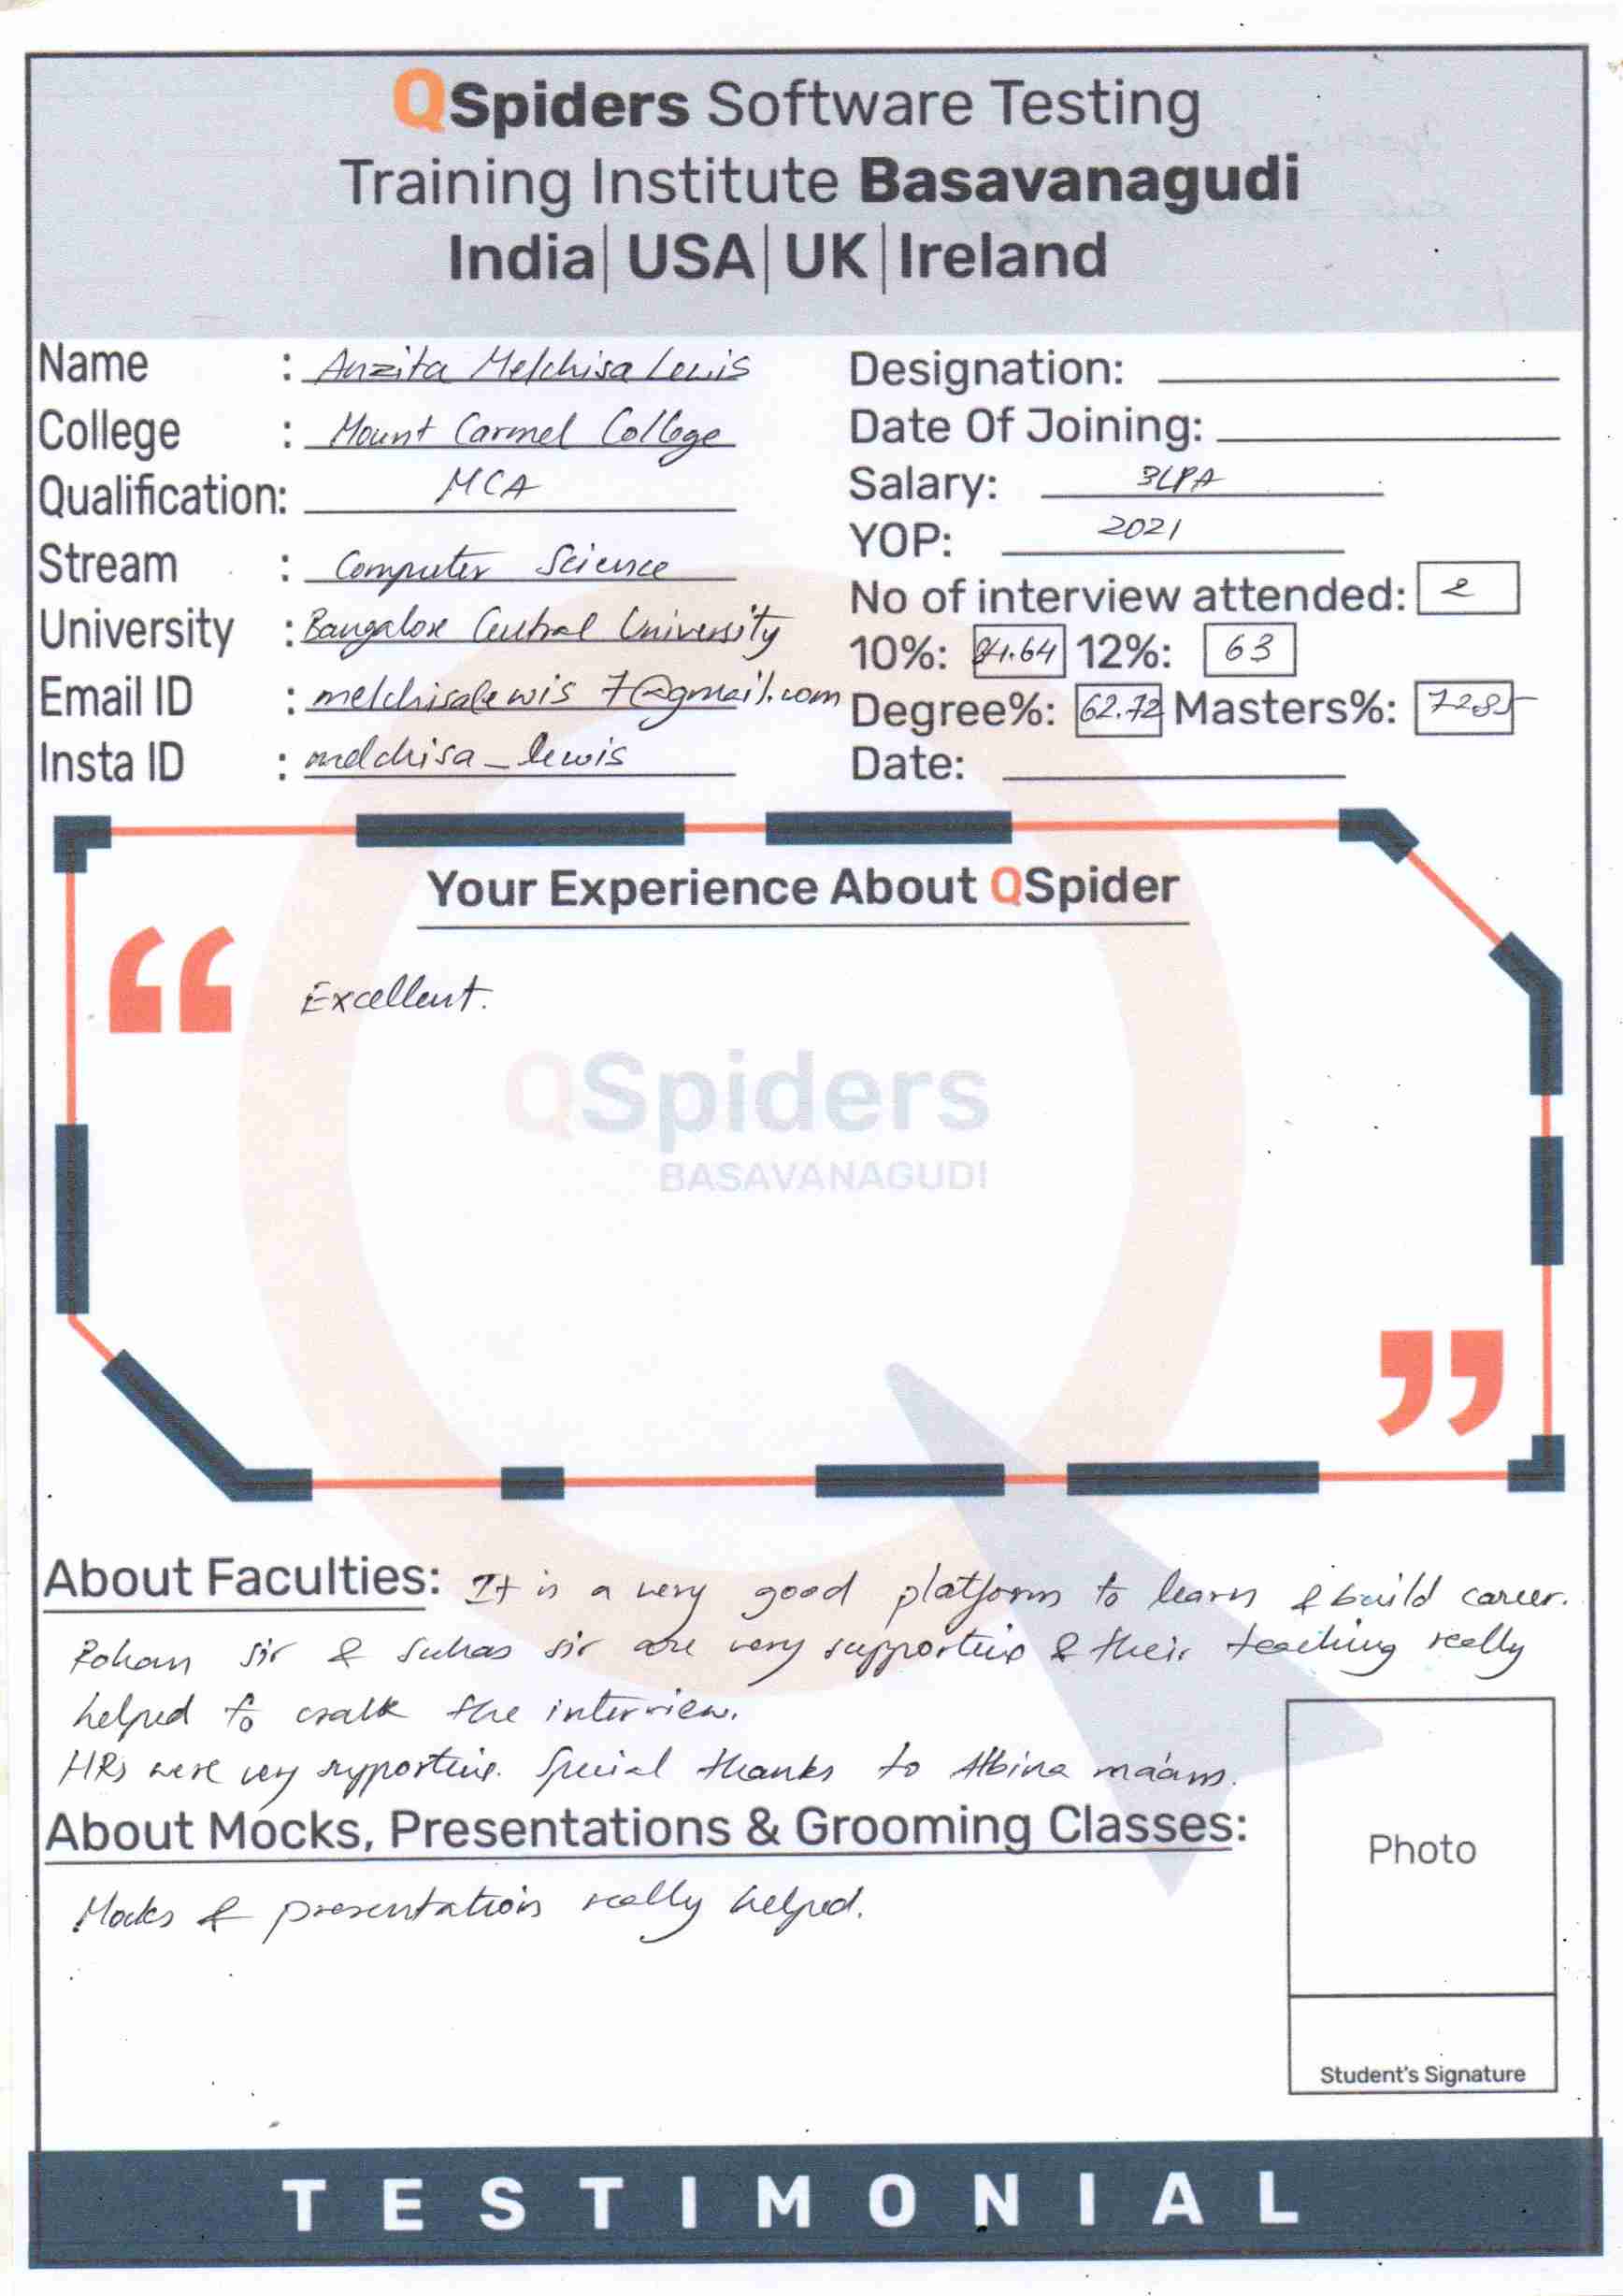 QSpiders Software Testing
Training Institute Basavanagudi
India| USA| UK| Ireland
Name : Anzita Melchisa Lewis
College : Mount Carmel College
Qualification: MCA
Stream : Computer Science
University : Bangalore Central University
Email ID : melchisalewis7@gmail.com
Insta ID : melchisa_lewis
Designation:
Date Of Joining:
Salary: 3LPA
YOP: 2021
No of interview attended: 2
10%: 84.64 12%: 63
Degree%: 62.72 Masters%: 72.85
Date:
Your Experience About QSpider
“ Excellent.
QSpiders
BASAVANAGUDI
”
About Faculties: It is a very good platform to learn & build career.
Rohan sir & Suhas sir are very supportive & their teaching really
helped to crack the interview.
HRs were very supportive. Special thanks to Albina ma'am.
About Mocks, Presentations & Grooming Classes:
Mocks & presentation really helped.
Photo
Student's Signature
TESTIMONIAL